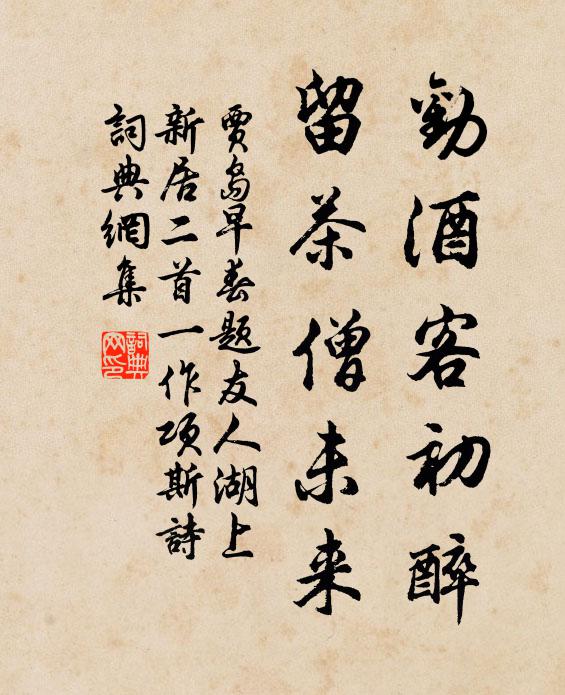 勸酒客初醉
留茶僧未来
賈島早春題友人湖上
新居二首一作项斯詩
詞典網集
詞典
网印